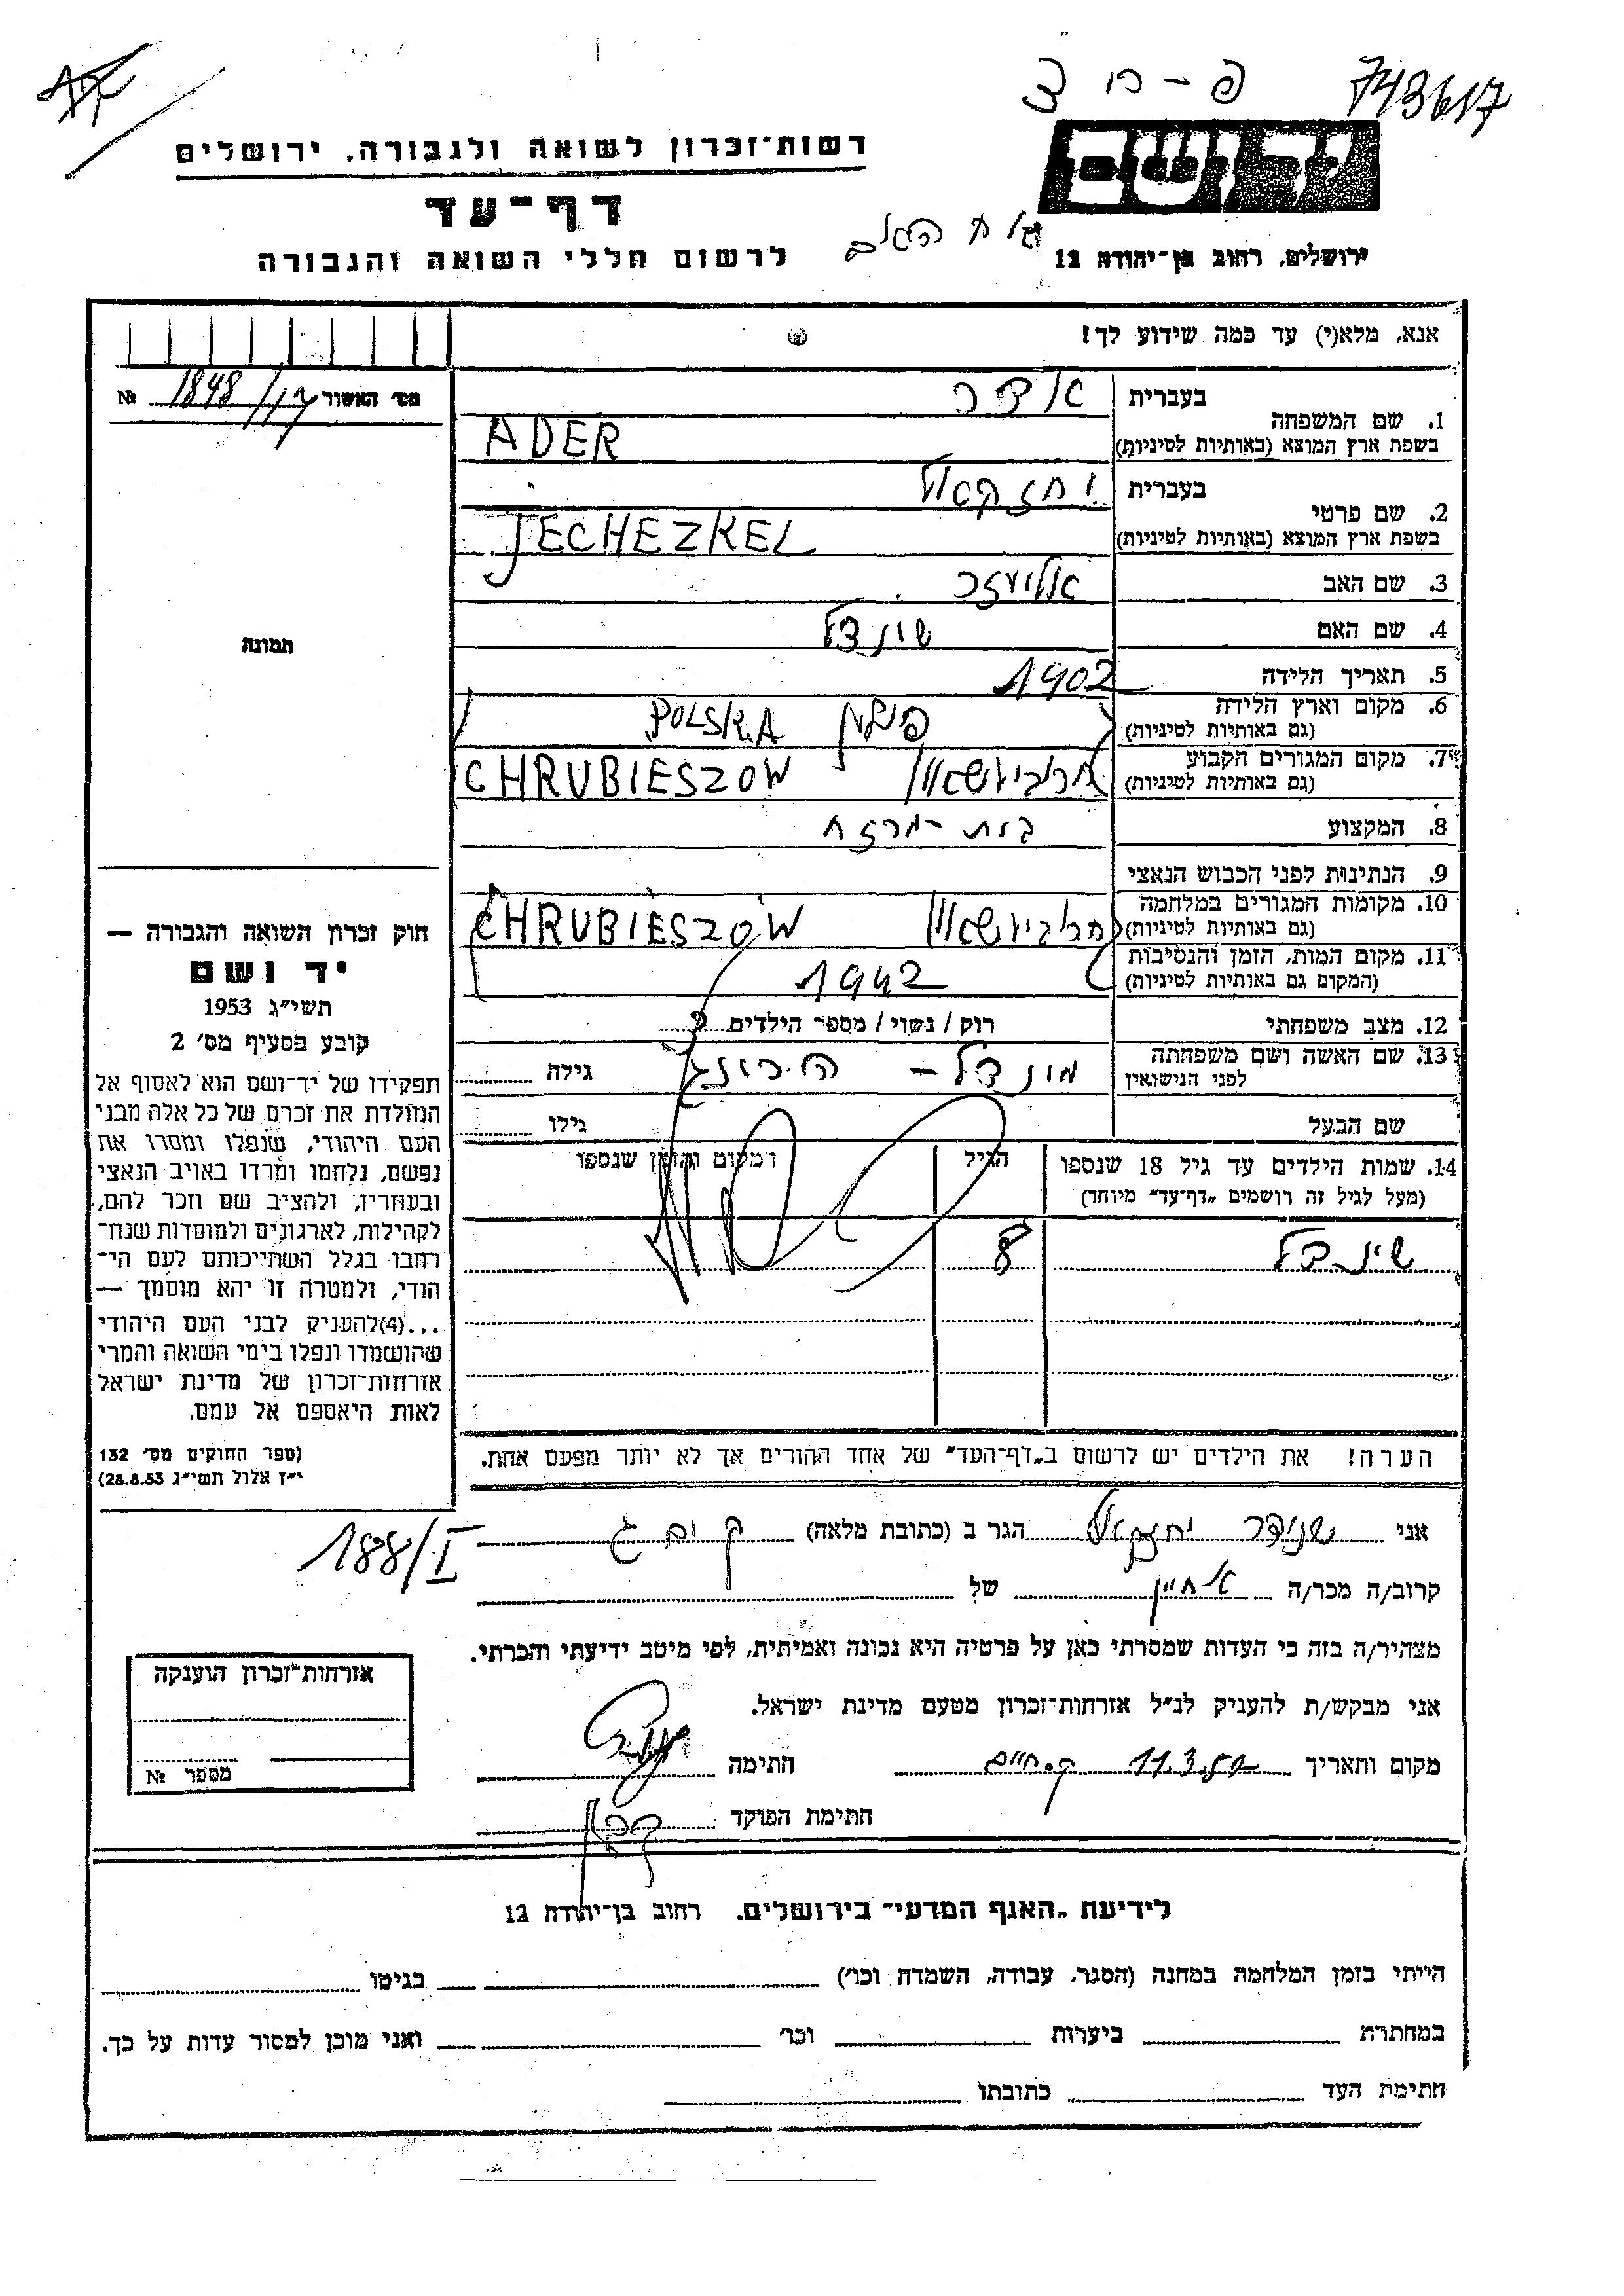 743617
רשות־זכרון לשואה ולגבורה, ירושלים
יד ושם
דף־עד
ירושלים, רחוב בן־יהודה 12
לרשום חללי השואה והגבורה
אנא, מלא(י) עד כמה שידוע לך!
מס׳ האשור 1848 №
1. שם המשפחה
בעברית אדר
בשפת ארץ המוצא (באותיות לטיניות) ADER
2. שם פרטי
בעברית יחזקאל
בשפת ארץ המוצא (באותיות לטיניות) JECHEZKEL
3. שם האב אליעזר
4. שם האם שינדל
5. תאריך הלידה 1902
6. מקום וארץ הלידה
(גם באותיות לטיניות) פולין POLSKA
7. מקום המגורים הקבוע
(גם באותיות לטיניות) CHRUBIESZOW
8. המקצוע בית-מרזח
9. הנתינות לפני הכבוש הנאצי
10. מקומות המגורים במלחמה
(גם באותיות לטיניות) CHRUBIESZOW
11. מקום המות, הזמן והנסיבות
(המקום גם באותיות לטיניות) 1942
12. מצב משפחתי רוק / נשוי / מספר הילדים
13. שם האשה ושם משפחתה
לפני הנישואין מינדל - גילה
שם הבעל גילו
14. שמות הילדים עד גיל 18 שנספו הגיל ומקום והזמן שנספו
(מעל לגיל זה רושמים „דף־עד״ מיוחד)
שינדל 8
הערה! את הילדים יש לרשום ב„דף־העד״ של אחד ההורים אך לא יותר מפעם אחת.
תמונה
חוק זכרון השואה והגבורה —
יד ושם
תשי״ג 1953
קובע בסעיף מס׳ 2
תפקידו של יד־ושם הוא לאסוף אל
המולדת את זכרם של כל אלה מבני
העם היהודי, שנפלו ומסרו את
נפשם, נלחמו ומרדו באויב הנאצי
ובעוזריו, ולהציב שם וזכר להם,
לקהילות, לארגונים ולמוסדות שנח־
רבו בגלל השתייכותם לעם הי־
הודי, ולמטרה זו יהא מוסמך —
...(4)להעניק לבני העם היהודי
שהושמדו ונפלו בימי השואה והמרי
אזרחות־זכרון של מדינת ישראל
לאות היאספם אל עמם.
(ספר החוקים מס׳ 132
י״ז אלול תשי״ג 28.8.53)
188/I
אני שניידר יחזקאל הגר ב (כתובת מלאה)
קרוב/ה מכר/ה אחיין של
מצהיר/ה בזה כי העדות שמסרתי כאן על פרטיה היא נכונה ואמיתית, לפי מיטב ידיעתי והכרתי.
אני מבקש/ת להעניק לנ״ל אזרחות־זכרון מטעם מדינת ישראל.
מקום ותאריך חתימה
חתימת הפוקד
אזרחות־זכרון הוענקה
מספר №
לידיעת „האגף המדעי״ בירושלים, רחוב בן־יהודה 12
הייתי בזמן המלחמה במחנה (הסגר, עבודה, השמדה וכו׳) בגיטו
במחתרת ביערות וכו׳ ואני מוכן למסור עדות על כך.
חתימת העד כתובתו